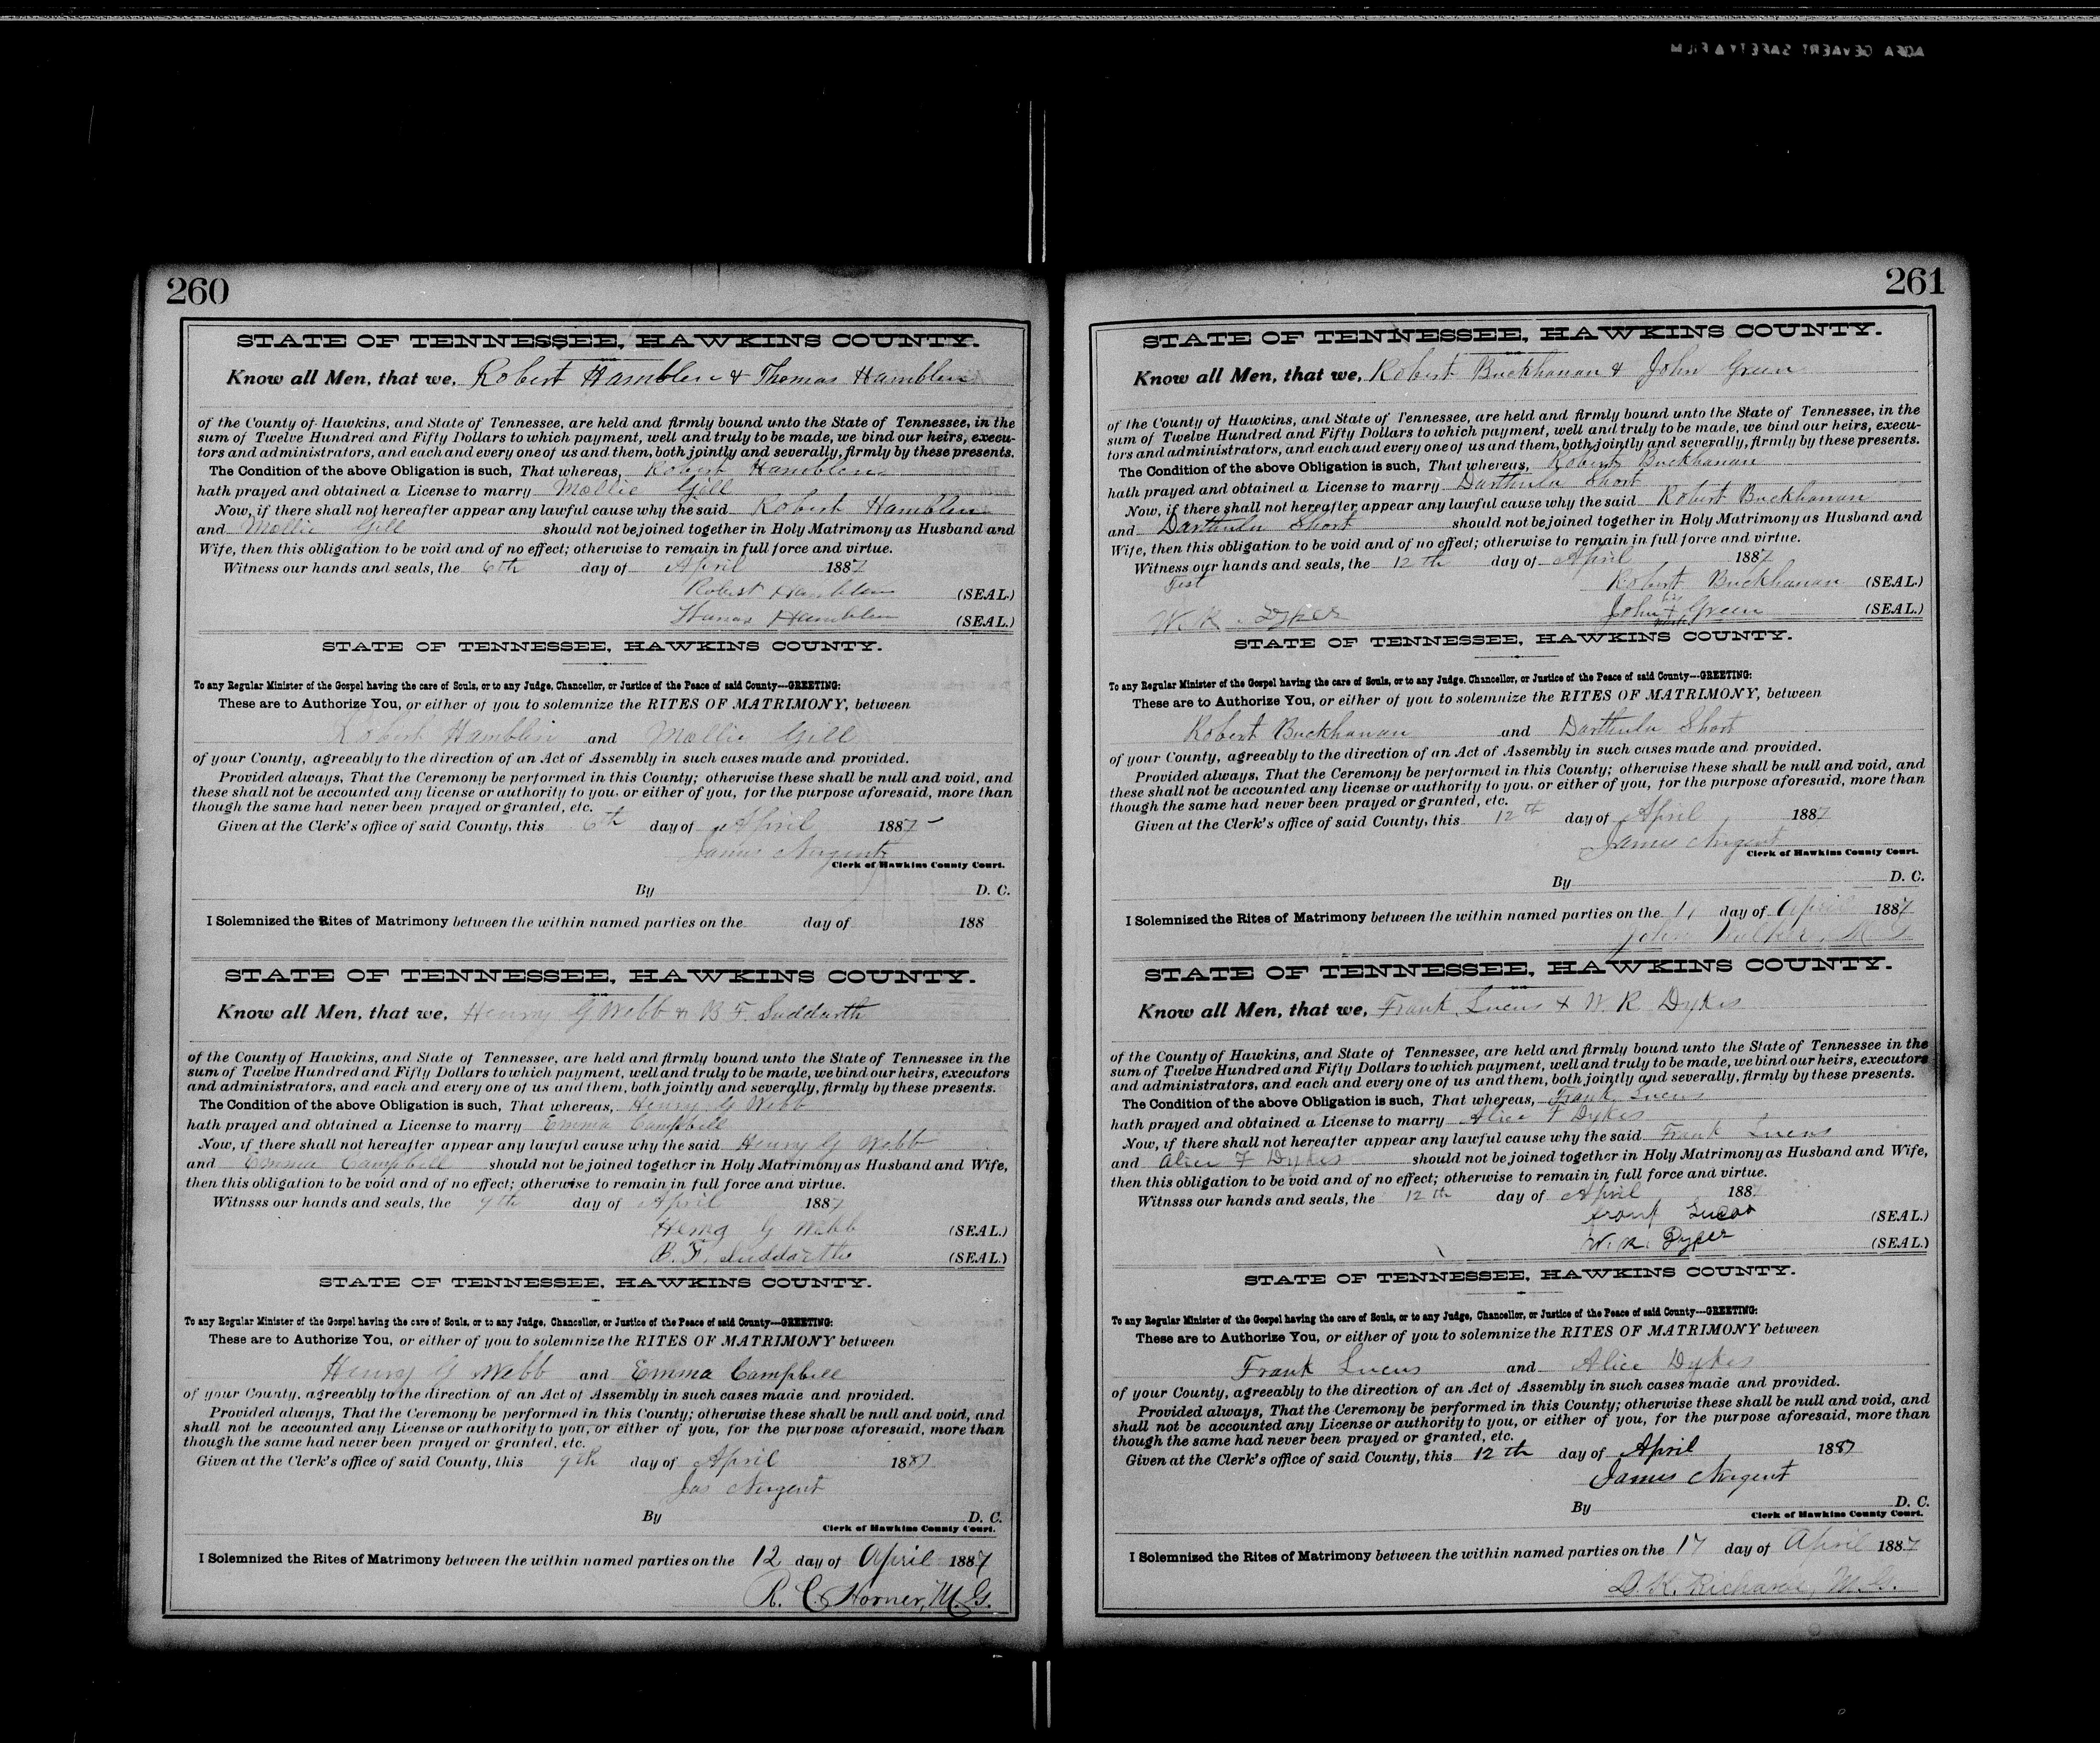 AGFA GEVAERT SAFETY FILM
260
STATE OF TENNESSEE, HAWKINS COUNTY.
Know all Men, that we, Robert Hamblen & Thomas Hamblen
of the County of Hawkins, and State of Tennessee, are held and firmly bound unto the State of Tennessee, in the
sum of Twelve Hundred and Fifty Dollars to which payment, well and truly to be made, we bind our heirs, execu-
tors and administrators, and each and every one of us and them, both jointly and severally, firmly by these presents.
The Condition of the above Obligation is such, That whereas, Robert Hamblen
hath prayed and obtained a License to marry Mollie Gill
Now, if there shall not hereafter appear any lawful cause why the said Robert Hamblen
and Mollie Gill should not be joined together in Holy Matrimony as Husband and
Wife, then this obligation to be void and of no effect; otherwise to remain in full force and virtue.
Witness our hands and seals, the 6th day of April 1887
Robert Hamblen (SEAL.)
Hamblen (SEAL.)
STATE OF TENNESSEE, HAWKINS COUNTY.
To any Regular Minister of the Gospel having the care of Souls, or to any Judge, Chancellor, or Justice of the Peace of said County---GREETING:
These are to Authorize You, or either of you to solemnize the RITES OF MATRIMONY, between
Robert Hamblin and Mollie Gill
of your County, agreeably to the direction of an Act of Assembly in such cases made and provided.
Provided always, That the Ceremony be performed in this County; otherwise these shall be null and void, and
these shall not be accounted any license or authority to you, or either of you, for the purpose aforesaid, more than
though the same had never been prayed or granted, etc.
Given at the Clerk's office of said County, this 6th day of April 1887
James Nugent
Clerk of Hawkins County Court.
By D. C.
I Solemnized the Rites of Matrimony between the within named parties on the day of 188
STATE OF TENNESSEE, HAWKINS COUNTY.
Know all Men, that we, Henry G Webb & B F. Suddarth
of the County of Hawkins, and State of Tennessee, are held and firmly bound unto the State of Tennessee in the
sum of Twelve Hundred and Fifty Dollars to which payment, well and truly to be made, we bind our heirs, executors
and administrators, and each and every one of us and them, both jointly and severally, firmly by these presents.
The Condition of the above Obligation is such, That whereas, Henry G Webb
hath prayed and obtained a License to marry Emma Campbell
Now, if there shall not hereafter appear any lawful cause why the said Henry G Webb
and Emma Campbell should not be joined together in Holy Matrimony as Husband and Wife,
then this obligation to be void and of no effect; otherwise to remain in full force and virtue.
Witnsss our hands and seals, the 9th day of April 1887
G Webb (SEAL.)
B. F. Suddarth (SEAL.)
STATE OF TENNESSEE, HAWKINS COUNTY.
To any Regular Minister of the Gospel having the care of Souls, or to any Judge, Chancellor, or Justice of the Peace of said County---GREETING:
These are to Authorize You, or either of you to solemnize the RITES OF MATRIMONY between
Henry G Webb and Emma Campbell
of your County, agreeably to the direction of an Act of Assembly in such cases made and provided.
Provided always, That the Ceremony be performed in this County; otherwise these shall be null and void, and
shall not be accounted any License or authority to you, or either of you, for the purpose aforesaid, more than
though the same had never been prayed or granted, etc.
Given at the Clerk's office of said County, this 9th day of April 1887
Jas Nugent
By D. C.
Clerk of Hawkins County Court.
I Solemnized the Rites of Matrimony between the within named parties on the 12 day of April 1887
R. C. Horner, M. G.
261
STATE OF TENNESSEE, HAWKINS COUNTY.
Know all Men, that we, Robert Buckhanan & John Green
of the County of Hawkins, and State of Tennessee, are held and firmly bound unto the State of Tennessee, in the
sum of Twelve Hundred and Fifty Dollars to which payment, well and truly to be made, we bind our heirs, execu-
tors and administrators, and each and every one of us and them, both jointly and severally, firmly by these presents.
The Condition of the above Obligation is such, That whereas, Robert Buckhanan
hath prayed and obtained a License to marry Darthula Short
Now, if there shall not hereafter appear any lawful cause why the said Robert Buckhanan
and Darthula Short should not be joined together in Holy Matrimony as Husband and
Wife, then this obligation to be void and of no effect; otherwise to remain in full force and virtue.
Witness our hands and seals, the 12th day of April 1887
Test Robert Buckhanan (SEAL.)
his
W. R. John X Green (SEAL.)
mark
STATE OF TENNESSEE, HAWKINS COUNTY.
To any Regular Minister of the Gospel having the care of Souls, or to any Judge, Chancellor, or Justice of the Peace of said County---GREETING:
These are to Authorize You, or either of you to solemnize the RITES OF MATRIMONY, between
Robert Buckhanan and Darthula Short
of your County, agreeably to the direction of an Act of Assembly in such cases made and provided.
Provided always, That the Ceremony be performed in this County; otherwise these shall be null and void, and
these shall not be accounted any license or authority to you, or either of you, for the purpose aforesaid, more than
though the same had never been prayed or granted, etc.
Given at the Clerk's office of said County, this 12th day of April 1887
James Nugent
Clerk of Hawkins County Court.
By D. C.
I Solemnized the Rites of Matrimony between the within named parties on the day of April 1887
John Walker, M G
STATE OF TENNESSEE, HAWKINS COUNTY.
Know all Men, that we, Frank Lucus & W. R Dykes
of the County of Hawkins, and State of Tennessee, are held and firmly bound unto the State of Tennessee in the
sum of Twelve Hundred and Fifty Dollars to which payment, well and truly to be made, we bind our heirs, executors
and administrators, and each and every one of us and them, both jointly and severally, firmly by these presents.
The Condition of the above Obligation is such, That whereas, Frank Lucus
hath prayed and obtained a License to marry Alice F Dykes
Now, if there shall not hereafter appear any lawful cause why the said Frank Lucus
and Alice F Dykes should not be joined together in Holy Matrimony as Husband and Wife,
then this obligation to be void and of no effect; otherwise to remain in full force and virtue.
Witnsss our hands and seals, the 12th day of April 188
Frank (SEAL.)
W. R. (SEAL.)
STATE OF TENNESSEE, HAWKINS COUNTY.
To any Regular Minister of the Gospel having the care of Souls, or to any Judge, Chancellor, or Justice of the Peace of said County---GREETING:
These are to Authorize You, or either of you to solemnize the RITES OF MATRIMONY between
Frank Lucus and Alice Dykes
of your County, agreeably to the direction of an Act of Assembly in such cases made and provided.
Provided always, That the Ceremony be performed in this County; otherwise these shall be null and void, and
shall not be accounted any License or authority to you, or either of you, for the purpose aforesaid, more than
though the same had never been prayed or granted, etc.
Given at the Clerk's office of said County, this 12th day of April 1887
James Nugent
By D. C.
Clerk of Hawkins County Court.
I Solemnized the Rites of Matrimony between the within named parties on the 17 day of April 1887
D. K. Richards, M. G.